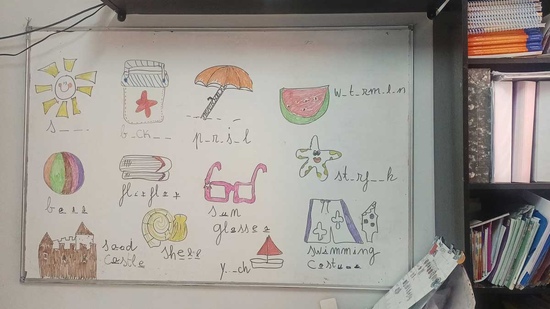 s _ _ _
b_ch_ _
p_r_s_l
w_t_rm_l_n
ball
flipflop
sun
glasses
st_rf_ _k
sand
castle
shell
y_ _ch
swimming
costume